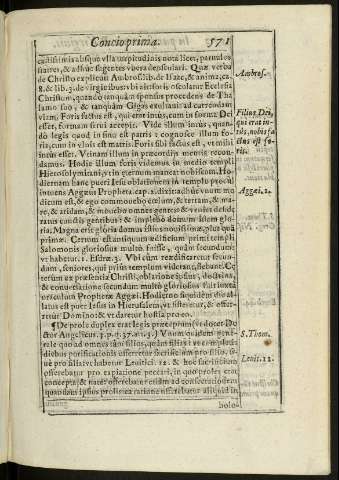 Concio prima. 571
castissimis absque vlla turpitudinis nota licet, paruulos
fratres, & adhuc sugentes vbera densulari. Quæ verba
de Christo explicuit Ambros. lib. de Isaac, & anima, ca.
8. & lib. 3. de virginibus: vbi ait foris osculatur Ecclesia
Christum, quando tanquàm sponsus procedens de Tha
lamo suo, & tanquàm Gigas exultauit ad currendam
viam. Foris factus est, qui erat intus, cum in forma Dei
esset, formam serui accepit. Vide illum intus, quan-
do legis quod in sinu est patris: cognosce illum fo-
ris, cum in vlnis est matris. Foris sibi factus est, vt mihi
intus esset. Vtinam illum in præcordijs mentis recon-
damus. Hodie illum foris videmus in medio templi
Hierosolymitani, vt in æternum maneat nobiscum. Ho-
diernam hanc pueri Iesu oblationem in templo præcui
intuens Aggæus Propheta cap. 2. dixit: adhuc vnum mo
dicum est, & ego commouebo cœlum, & terram, & ma-
re, & aridam, & mouebo omnes gentes: & veniet deside
ratus cunctis gentibus: & implebo domum istam glo-
ria. Magna erit gloria domus istius nouissimæ, plus quà
primæ. Cærum est antiquum ædificium primi templi
Salomonis gloriosius multò fuisse, quàm secundum:
vt habetur. 1. Esdræ. 3. Vbi cùm reædificaretur secun-
dum, seniores, qui prius templum viderant, flebant. Cæ
terum ex præsentia Christi, oblatione ipsius, doctrina,
& conuersatione secundum multò gloriosius fuit iuxta
oraculum Prophetæ Aggæi. Hodierno siquidem die al-
latus est puer Iesus in Hierusalem, vt sisteretur, & offer-
retur Domino: & vt daretur hostia pro eo.
¶ De prole duplex erat legis præceptum (vt docet Do
ctor Angelicus. 3. p. q. 37. a. 3.) Vnum quidem gene-
rale quo ad omnes tàm filios, quàm filias: vt completis
diebus purificationis offerretur sacrificium pro filio, si-
ue pro filia: vt habetur Leuitici. 12. & hoc sacrificium
offerebatur pro expiatione peccati, in quo proles erat
concepta, & nata: offerebatur etiam ad consecrationem
quandam ipsius prolis: ea ratione offerebatur aliquid in
holo-
Ambros.
Filius Dei,
qui erat in-
tus, nobis fa
ctus est fo-
ris.
Aggæi. 2.
S. Thom.
Leuit. 12.